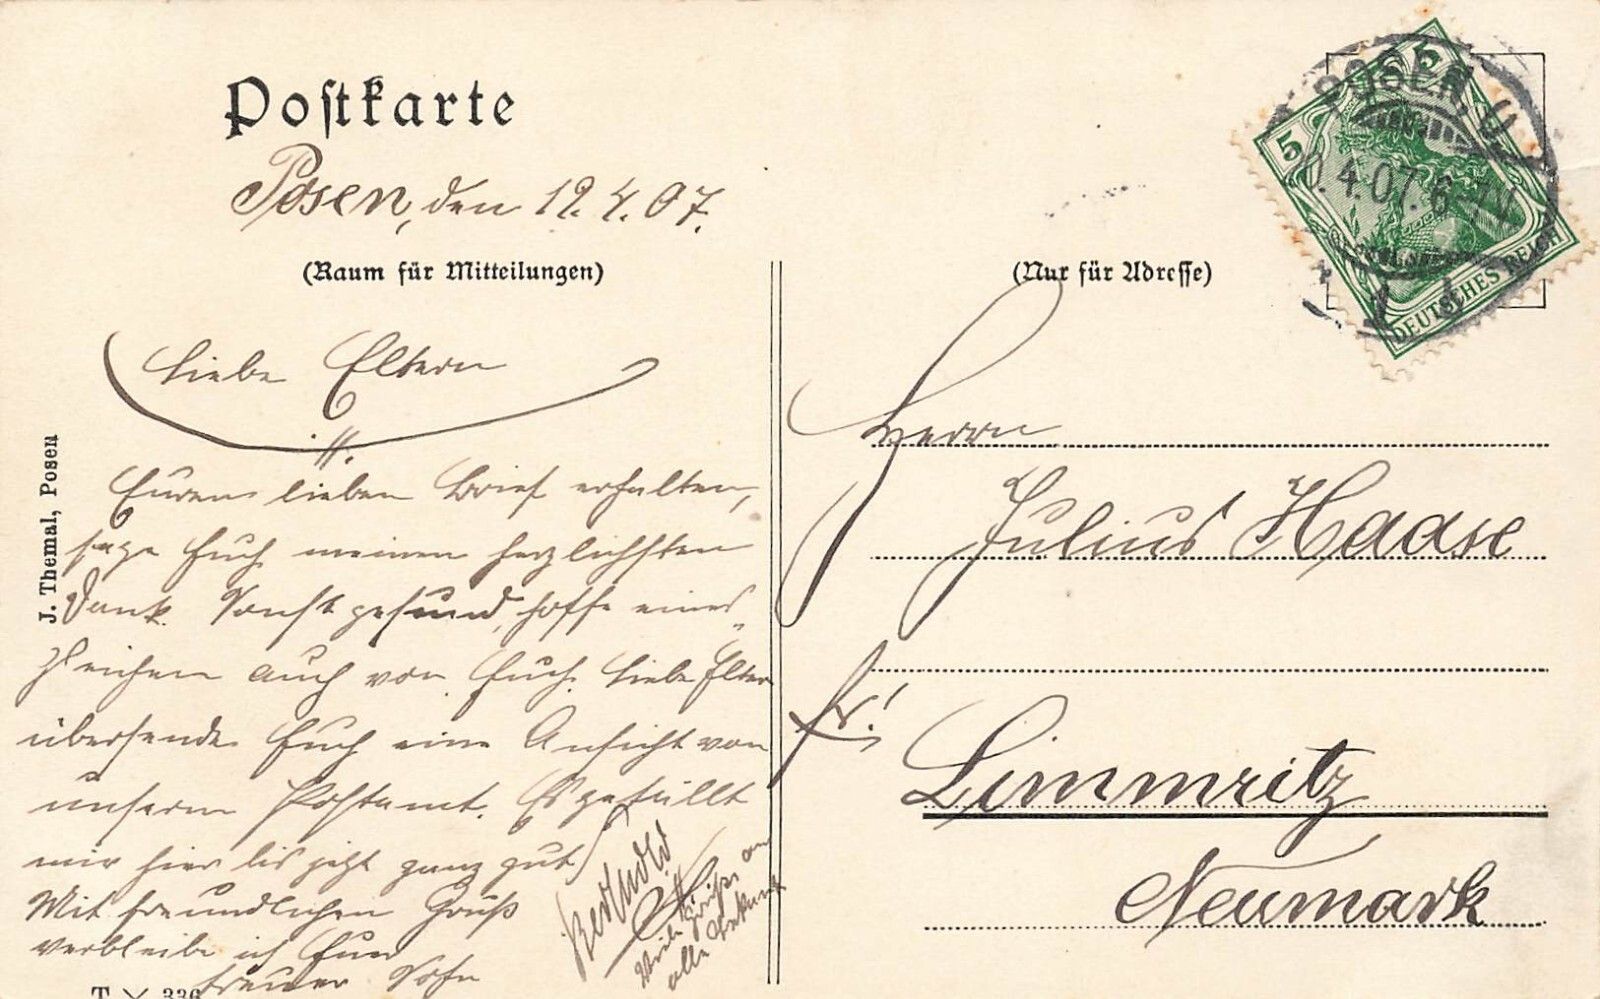 Postkarte
Posen, den 12.4.07.
(Raum für Mitteilungen)
Liebe Eltern
!!.
Euren lieben Brief erhalten,
sage Euch meinen herzlichsten
Dank. Sonst gesund, hoffe eines
gleichen auch von Euch. Liebe Eltern
übersende Euch eine Ansicht von
unserm Postamt. Es gefällt
mir hier bis jetzt ganz gut.
Mit freundlichen Gruß
verbleibe ich Euer
treuer Sohn
Berthold
Viele Grüße an
alle
J. Themal, Posen
T 336
(Nur für Adresse)
POSEN O
4.07. 6-7N
5
5
DEUTSCHES REICH
Herrn
Julius Haase
fr!
Limmritz
Neumark